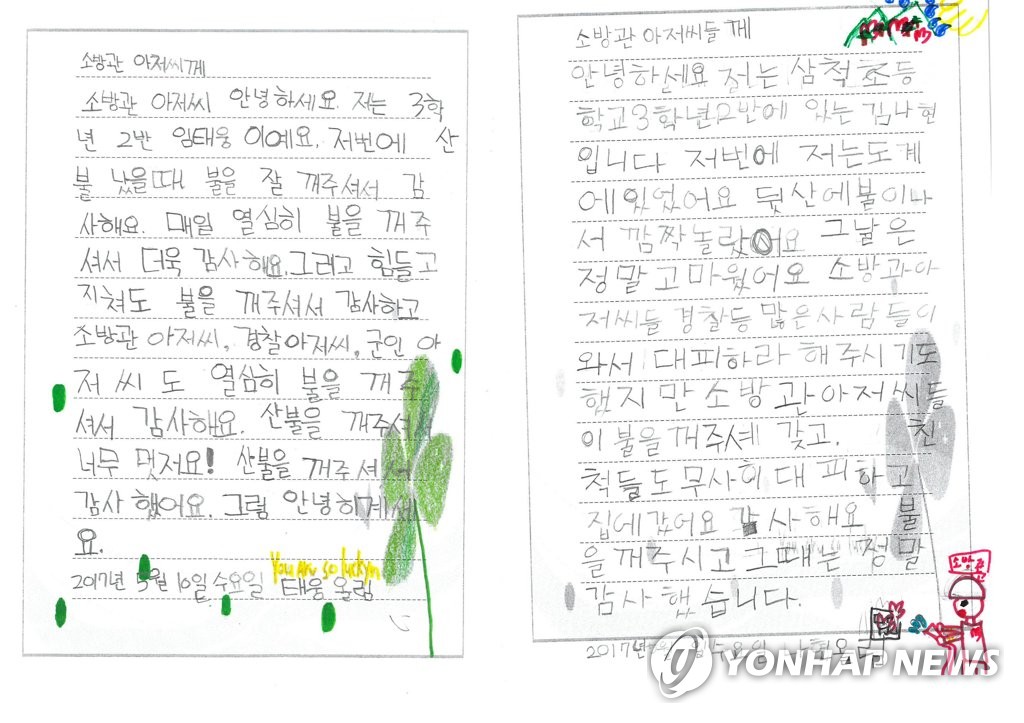 소방관 아저씨께
소방관 아저씨 안녕하세요. 저는 3학
년 2반 임태웅 이예요. 저번에 산
불 났을때 불을 잘 꺼주셔서 감
사해요. 매일 열심히 불을 꺼주
셔서 더욱 감사해요.그리고 힘들고
지쳐도 불을 꺼주셔서 감사하고
소방관 아저씨, 경찰아저씨, 군인 아
저씨도 열심히 불을 꺼주
셔서 감사해요. 산불을 꺼주셔서
너무 멋저요! 산불을 꺼주셔서
감사했어요. 그럼 안녕히계세
요.
You are so lucky
2017년 5월 10일 수요일 태웅 올림
소방관 아저씨들께
안녕하세요 저는 삼척초등
학교3학년2반에 있는 김나현
입니다 저번에 저는도계
에있었어요 뒷산에불이나
서 깜짝놀랐어요 그날은
정말고마웠어요 소방관아
저씨들 경찰등 많은사람들이
와서 대피하라 해주시기도
했지만소방관아저씨들
이불을꺼주셰 갖고. 친
척들도무사히대피하고
집에갔어요 감사해요 불
을꺼주시고그때는 정말
감사했습니다.
2017년 수요일 나현올림
소방관
YONHAP NEWS